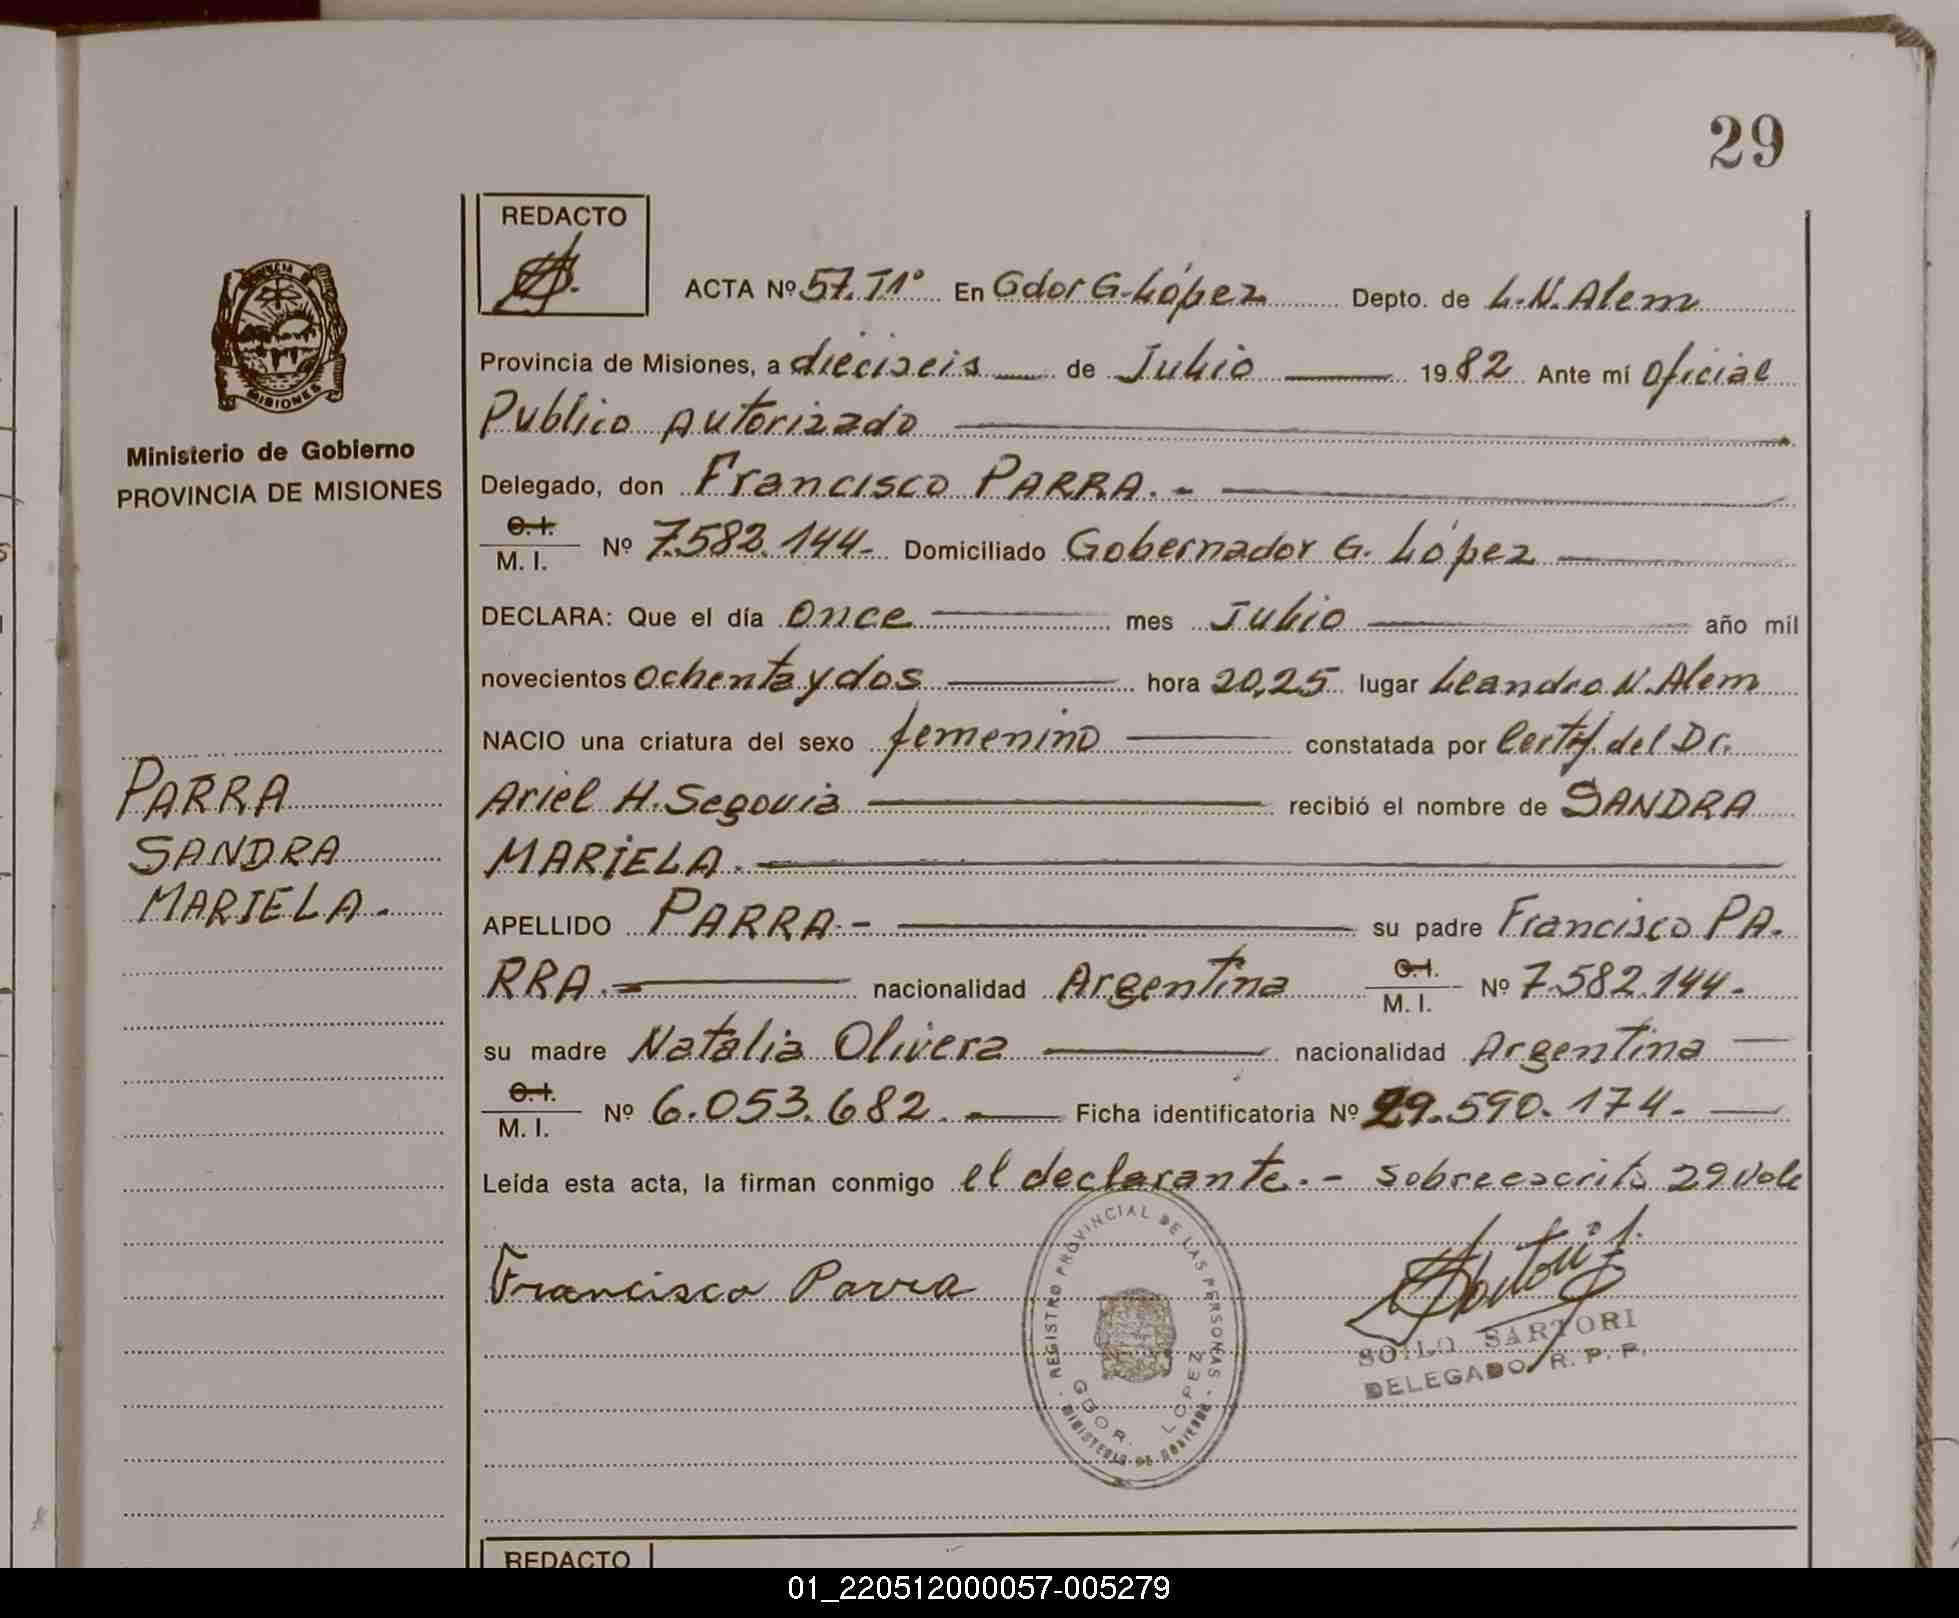 29
REDACTO
ACTA Nº 57.T1º En Gdor G. López Depto. de L.N. Alem
Provincia de Misiones, a dieciseis de Julio 1982 Ante mí Oficial
Publico Autorizado
Delegado, don Francisco PARRA.-
C.I.
M. I. Nº 7.582.144- Domiciliado Gobernador G. López
DECLARA: Que el día Once mes Julio año mil
novecientos Ochenta y dos hora 20,25 lugar Leandro N. Alem
NACIO una criatura del sexo femenino constatada por Certif. del Dr.
Ariel H. Segovia recibió el nombre de SANDRA
MARIELA.
APELLIDO PARRA- su padre Francisco PA-
RRA.- nacionalidad Argentina C.I. M. I. Nº 7.582.144-
su madre Natalia Olivera nacionalidad Argentina
C.I.
M. I. Nº 6.053.682. Ficha identificatoria Nº 29.590.174-
Leída esta acta, la firman conmigo el declarante.- Sobreescrito 29 Vale
Francisco Parra
REGISTRO PROVINCIAL DE LAS PERSONAS
GDOR. LOPEZ
MINISTERIO DE GOBIERNO
SOILO SARTORI
DELEGADO R. P. P.
PROVINCIA DE
MISIONES
Ministerio de Gobierno
PROVINCIA DE MISIONES
PARRA
SANDRA
MARIELA.
REDACTO
01_220512000057-005279